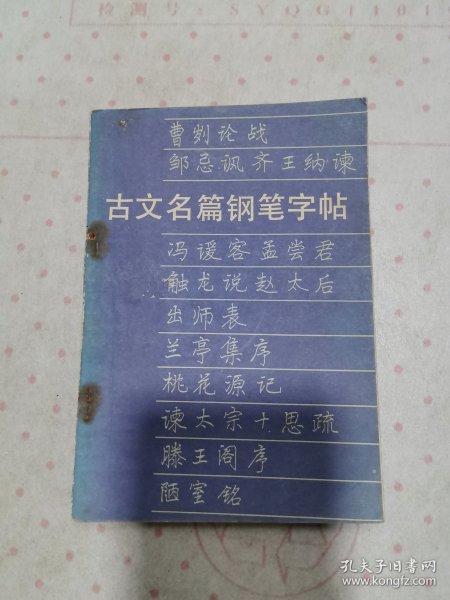 检测号:SYQG1101
曹刿论战
邹忌讽齐王纳谏
古文名篇钢笔字帖
冯谖客孟尝君
触龙说赵太后
出师表
兰亭集序
桃花源记
谏太宗十思疏
滕王阁序
陋室铭
孔夫子旧书网
www.kongfz.com